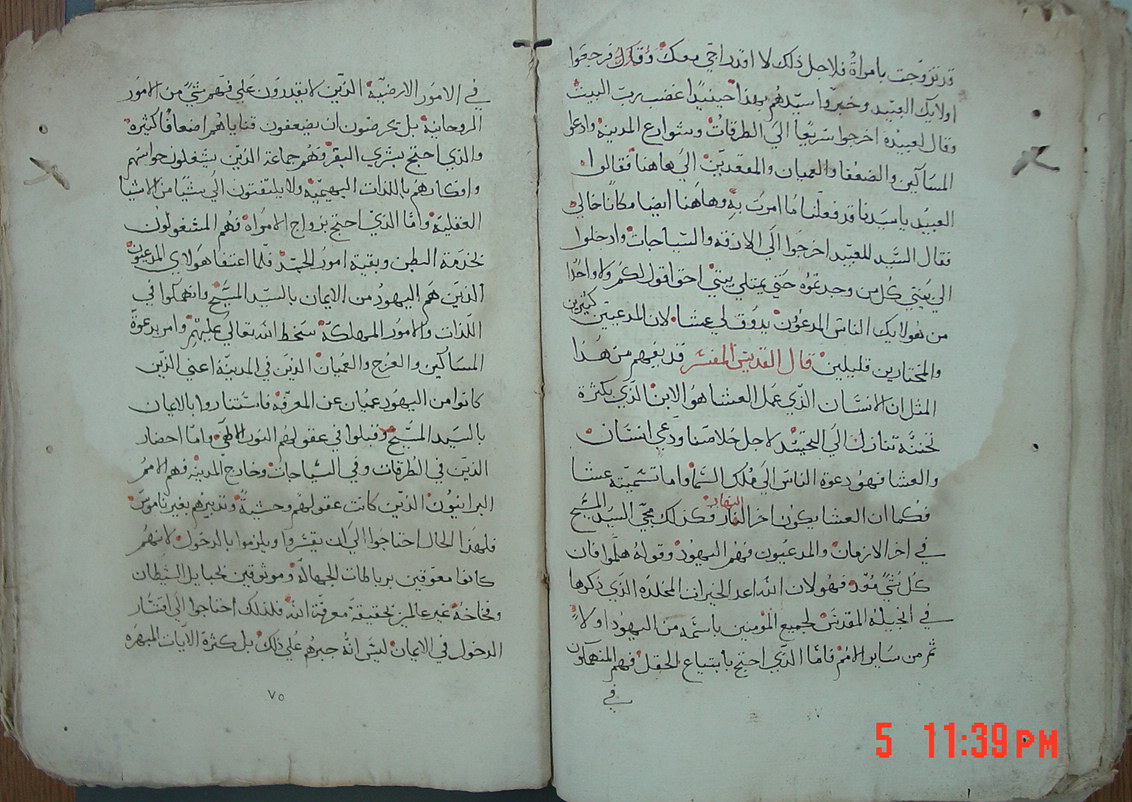 قد تزوجت بامراة فلاجل ذلك لا اقدر اجي معك وكذلك فرجعوا
اولايك العبيد وخبروا سيدهم بهذا حينيذا غضب رب البيت
وقال لعبيده اخرجوا سريعا الي الطرقات وشوارع المدينة وادعوا
المساكين والضعفا والعميان والمقعدين الي هاهنا فقالوا
العبيد ياسيدنا قد فعلنا ما امرت به وهاهنا ايضا مكانا خالي
فقال السيد للعبيد اخرجوا الي الازقه والسياجات وادخلوا
الي بيتي كل من وجدتموه حتي يمتلي بيتي احق اقول لكم ولا واحدا
من هولايك الناس المدعوون يدوق لي عشا لان المدعيين كثيرين
والمختارين قليلين قال القديس المفسر قد يفهم من هذا
المثل ان الانسان الذي عمل العشا هو الابن الذي بكثرة
تحننه تنازل الي التجسد لاجل خلاصنا ودعي انسان
والعشا فهو دعوة الناس الي ملك السما واما تسميته عشا
فكما ان العشا يكون اخر النهار وكذلك مجي السيد المسيح
في اخر الازمان والمدعيون فهم اليهود وقوله هلموا فان
كل شي معد فهو لان الله اعد الخيرات المخلده الذي ذكرها
في انجيله المقدس لجميع المومنين باسمه من اليهود اولا
ثم من ساير الامم فاما الذي احتج بابتياع الحقل فهم المنهمكون
في
في الامور الارضية الذين لا يقدرون علي فهم شي من الامور
الروحانية بل يحرصون ان يضعفون قناياهم اضعافا كثيرة
والذي احتج بشري البقر فهم جماعة الذين يشغلون حواسهم
وافكارهم باللذات البهيمية ولا يلتفتون الي شيا من الاشيا
العقلية واما الذي احتج بزواج الامراة فهم المشغولون
بخدمة البطن وبقية امور الجسد فلما اعتفا هولاي المدعيون
الذين هم اليهود من الايمان بالسيد المسيح وانهمكوا في
اللذات والامور المهلكة سخط الله تعالي عليهم وامر بدعوة
المساكين والعرج والعميان الذين في المدينة اعني الذين
كانوا من اليهود عميان عن المعرفة فاستناروا بالايمان
بالسيد المسيح وقبلوا في عقولهم النور الالهي واما احضار
الذين في الطرقات وفي السياجات وخارج المدينة فهم الامم
البرانيون الذين كانت عقولهم وحشية وتدبيرهم بغير ناموس
فلهذا الحال احتاجوا الي ان يقسروا ويلزموا بالدخول لانهم
كانوا معوقين برباطات الجهالة وموثوقين بحبايل الشيطان
وفخاخه غير عالمين بحقيقة معرفة الله فلذلك احتاجوا الي اقتسار
الدخول في الايمان ليس انه جبرهم علي ذلك بل كثرة الايات المبهره
٧٥
5 11:39 PM